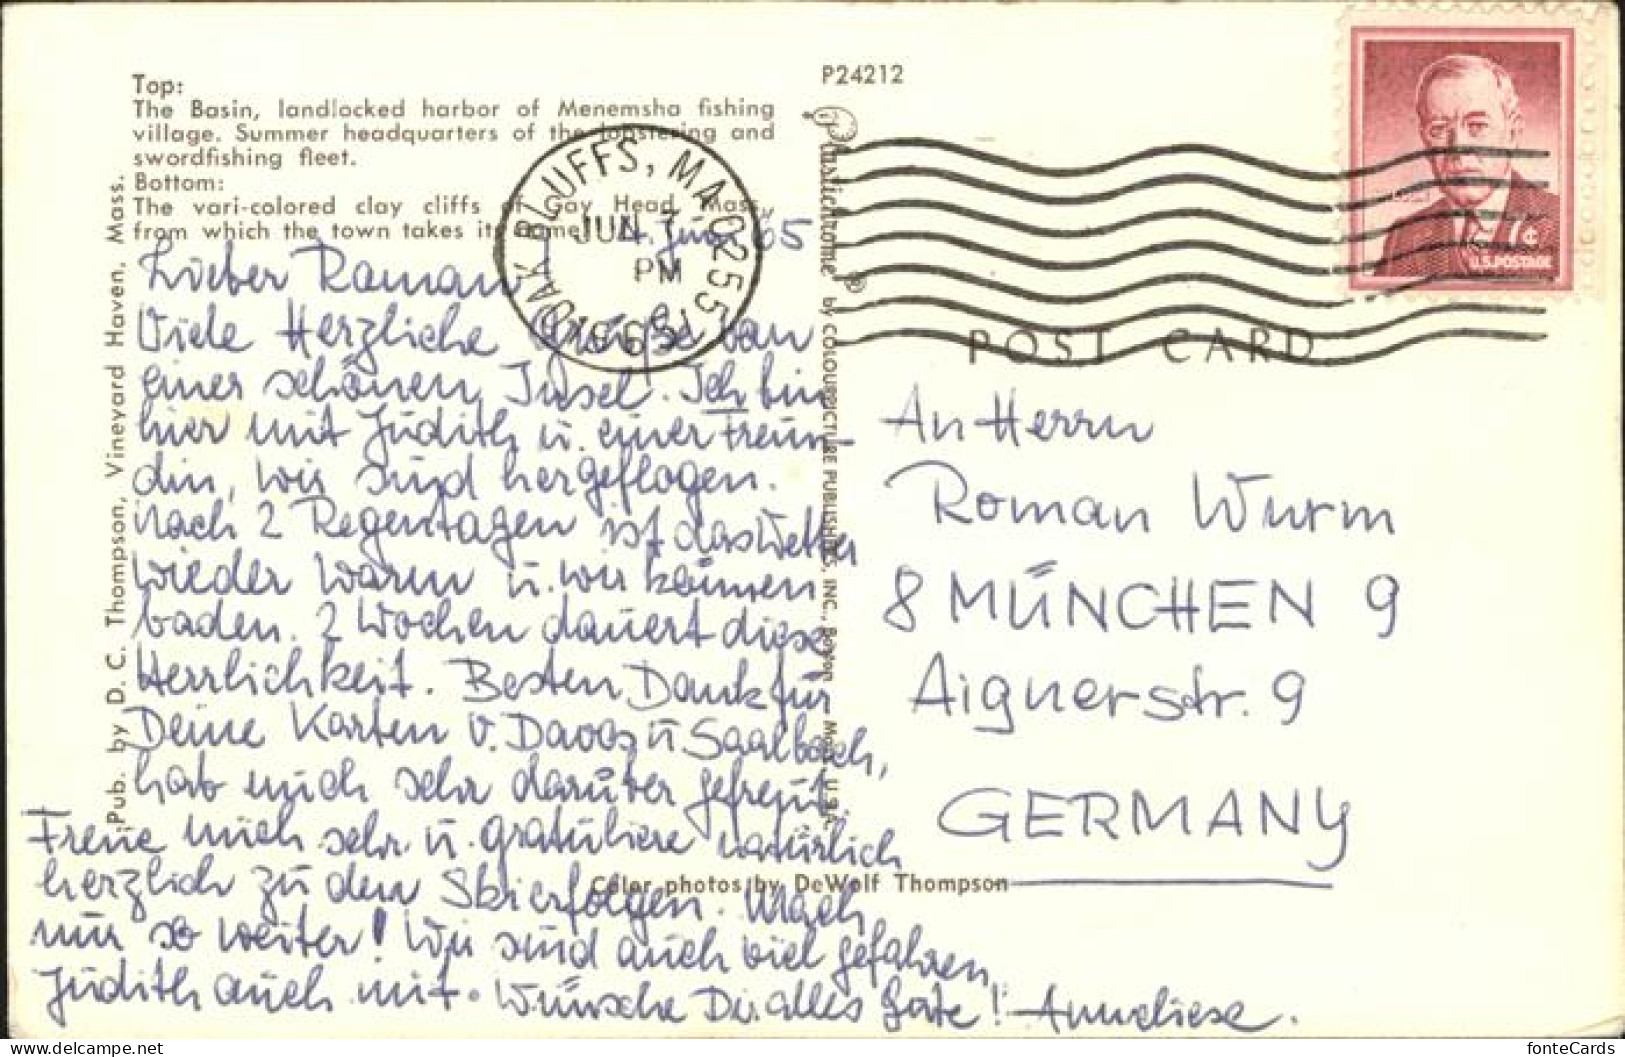 P24212
Top:
The Basin, landlocked harbor of Menemsha fishing
village. Summer headquarters of the lobstering and
swordfishing fleet.
Bottom:
The vari-colored clay cliffs of Gay Head, Mass.,
from which the town takes its name.
OAK BLUFFS, MA 02557
JUN 7
PM
1965
7¢
U.S. POSTAGE
POST CARD
Plastichrome ® by COLOURPICTURE PUBLISHERS, INC., Boston, Mass., U.S.A.
Pub. by D. C. Thompson, Vineyard Haven, Mass.
4. Juni 65
Lieber Roman
Viele Herzliche Grüße von
einer schönen Insel. Ich bin
hier mit Judith u. einer Freun-
din, wir sind hergeflogen.
nach 2 Regentagen ist das Wetter
wieder warm u. wir können
baden. 2 Wochen dauert diese
Herrlichkeit. Besten Dank für
Deine Karten v. Davos u Saalbach,
hab mich sehr darüber gefreut.
Freue mich sehr u. gratuliere natürlich
herzlich zu den Skierfolgen. Mach
nur so weiter! Wir sind auch viel gefahren,
Judith auch mit. Wünsche Dir alles Gute! Anneliese.
An Herrn
Roman Wurm
8 MÜNCHEN 9
Aignerstr. 9
GERMANY
Color photos by DeWolf Thompson
fonteCards
www.delcampe.net